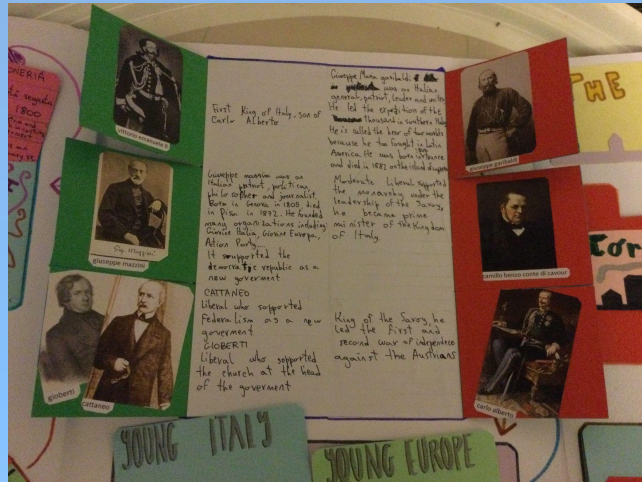 NERIA
1800
vittorio emanuele II
First King of Italy, son of
Carlo Alberto
giuseppe mazzini
Giuseppe mazzini was an
Italian patriot, politician,
philosopher and journalist.
Born in Genova in 1805, died
in Pisa in 1872. He founded
many organizations including:
Giovine Italia, Giovine Europa,
Action Party...
It supported the
democratic republic as a
new goverment
gioberti
cattaneo
CATTANEO
Liberal who supported
Federalism as a new
goverment
GIOBERTI
Liberal who supported
the church at the head
of the goverment
Giuseppe Maria garibaldi
was an Italian
general, patriot, leader and
He led the expedition of the
thousand in southern
He is called the hero of two worlds
because he too fought in Latin
America. He was born in
and died in 1882 on the island of
giuseppe garibaldi
Moderate Liberal supported
the monarchy under the
leadership of the Savoy,
he became prime
minister of the Kingdom
of Italy
camillo benso conte di cavour
King of the Savoy, he
led the First and
second war of independece
against the Austrians
carlo alberto
THE
YOUNG ITALY
YOUNG EUROPE